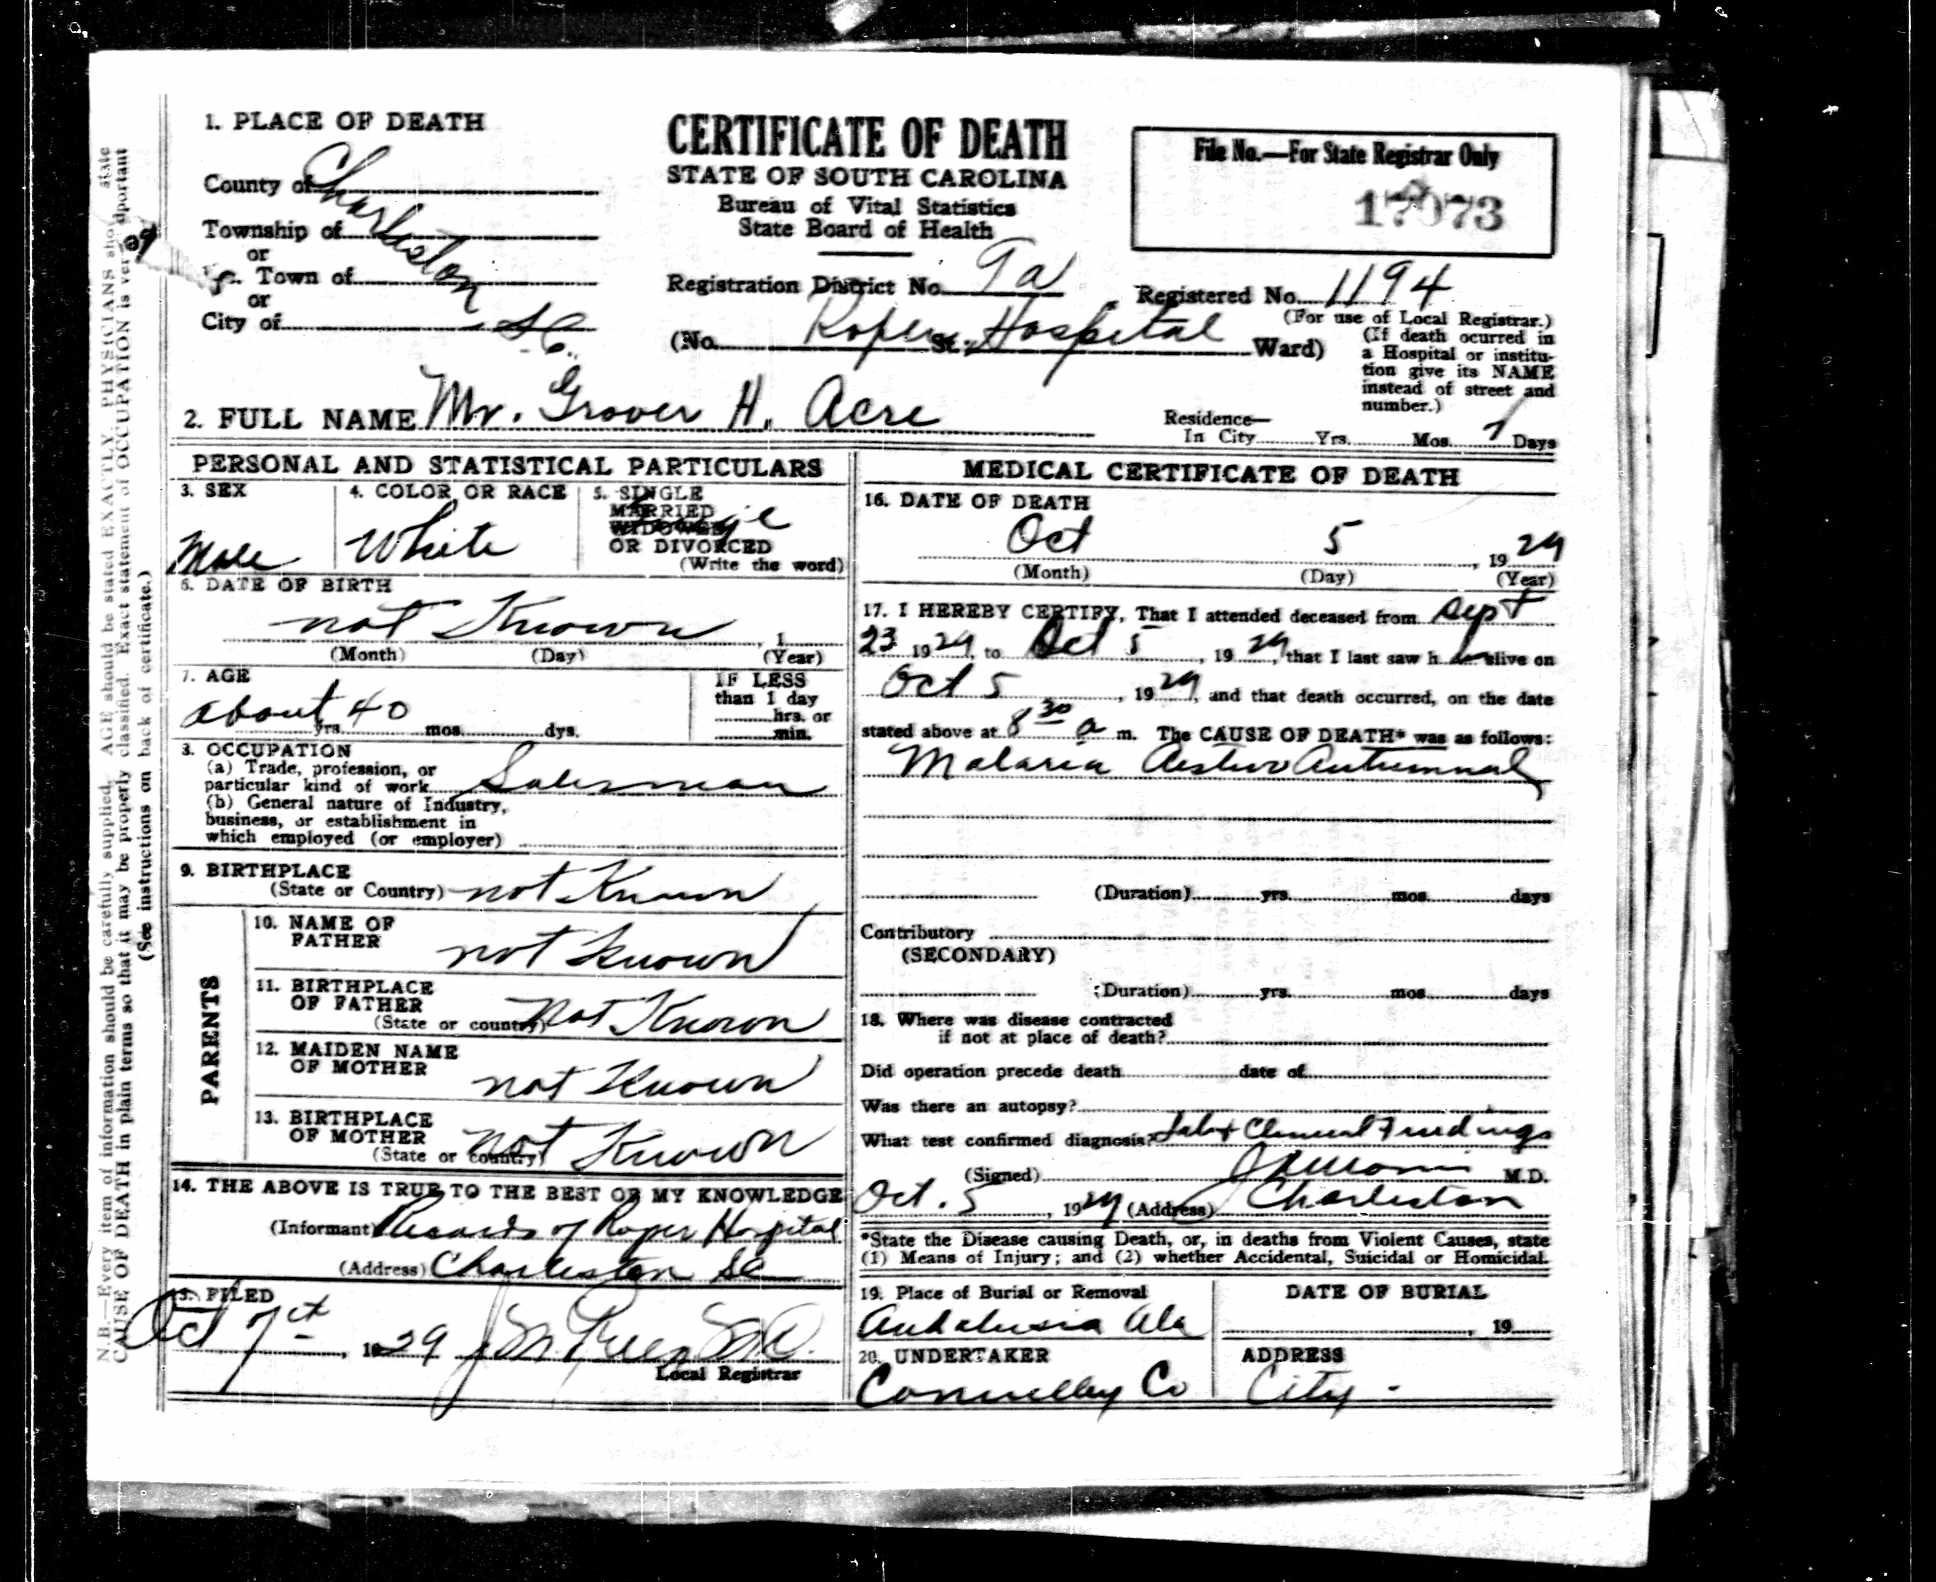 1. PLACE OF DEATH
County of Charleston
Township of
or
Town of
or
City of S.C.
CERTIFICATE OF DEATH
STATE OF SOUTH CAROLINA
Bureau of Vital Statistics
State Board of Health
File No.—For State Registrar Only
17073
Registration District No. 9a
Registered No. 1194
(For use of Local Registrar.)
(No. Roper St.; Hospital Ward)
(If death ocurred in
a Hospital or institu-
tion give its NAME
instead of street and
number.)
2. FULL NAME Mr. Grover H. Acre
Residence—
In City Yrs. Mos. Days
PERSONAL AND STATISTICAL PARTICULARS
3. SEX
Male
4. COLOR OR RACE
White
5. SINGLE
MARRIED
WIDOWED
OR DIVORCED
(Write the word)
6. DATE OF BIRTH
not Known , 1
(Month) (Day) (Year)
7. AGE
about 40
yrs. mos. dys.
IF LESS
than 1 day
hrs. or
min.
8. OCCUPATION
(a) Trade, profession, or
particular kind of work Salesman
(b) General nature of Industry,
business, or establishment in
which employed (or employer)
9. BIRTHPLACE
(State or Country) not Known
PARENTS
10. NAME OF
FATHER not Known
11. BIRTHPLACE
OF FATHER
(State or country) Not Known
12. MAIDEN NAME
OF MOTHER not Known
13. BIRTHPLACE
OF MOTHER
(State or country) not Known
14. THE ABOVE IS TRUE TO THE BEST OF MY KNOWLEDGE
(Informant) Records of Roper Hospital
(Address) Charleston SC
15. FILED
Oct 7th, 1929
Local Registrar
MEDICAL CERTIFICATE OF DEATH
16. DATE OF DEATH
Oct 5, 1929
(Month) (Day) (Year)
17. I HEREBY CERTIFY, That I attended deceased from Sept
23 1929, to Oct 5, 1929, that I last saw h alive on
Oct 5, 1929, and that death occurred, on the date
stated above at 8 30 a m. The CAUSE OF DEATH* was as follows:
Malaria Aestivo Autumnal
(Duration) yrs. mos. days
Contributory
(SECONDARY)
(Duration) yrs. mos. days
18. Where was disease contracted
if not at place of death?
Did operation precede death date of
Was there an autopsy?
What test confirmed diagnosis? Lab & Clinical Findings
(Signed) M.D.
Oct. 5, 1929 (Address) Charleston
*State the Disease causing Death, or, in deaths from Violent Causes, state
(1) Means of Injury; and (2) whether Accidental, Suicidal or Homicidal.
19. Place of Burial or Removal
Andalusia Ala
DATE OF BURIAL
, 19
20. UNDERTAKER
Connelley Co
ADDRESS
City -
N.B.—Every item of information should be carefully supplied. AGE should be stated EXACTLY. PHYSICIANS should state
CAUSE OF DEATH in plain terms so that it may be properly classified. Exact statement of OCCUPATION is very important
(See instructions on back of certificate.)